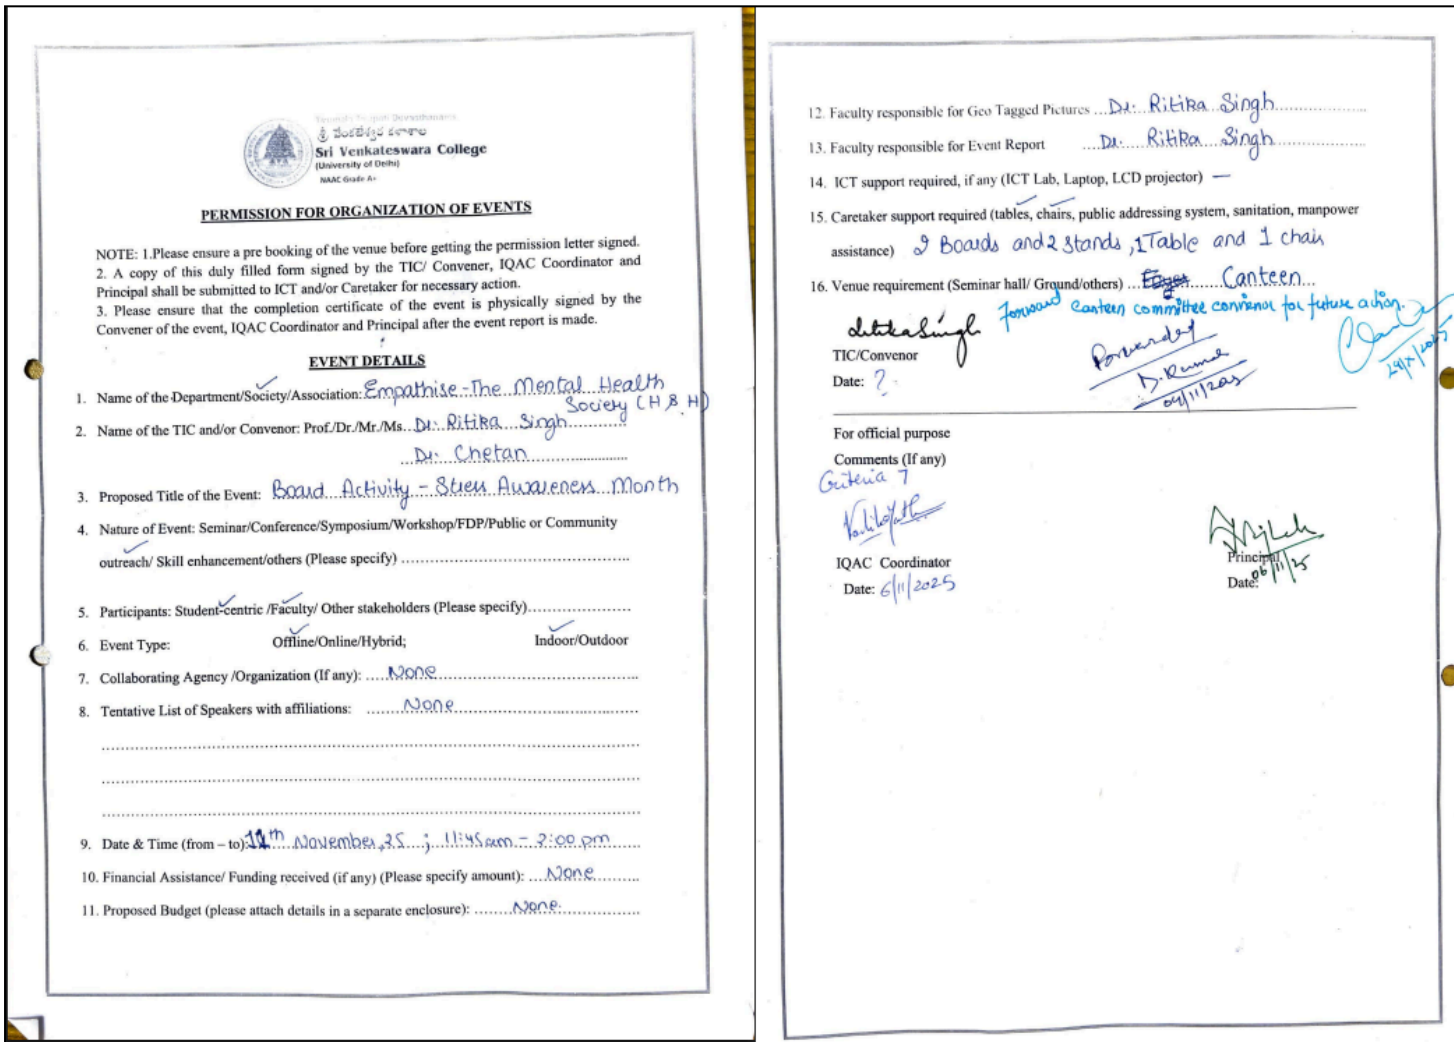 Tirumala Tirupati Devasthanams
శ్రీ వేంకటేశ్వర కళాశాల
Sri Venkateswara College
(University of Delhi)
NAAC Grade A+
PERMISSION FOR ORGANIZATION OF EVENTS
NOTE: 1.Please ensure a pre booking of the venue before getting the permission letter signed.
2. A copy of this duly filled form signed by the TIC/ Convener, IQAC Coordinator and
Principal shall be submitted to ICT and/or Caretaker for necessary action.
3. Please ensure that the completion certificate of the event is physically signed by the
Convener of the event, IQAC Coordinator and Principal after the event report is made.
EVENT DETAILS
1. Name of the Department/Society/Association: Empathise-The Mental Health
Society (H & H)
2. Name of the TIC and/or Convenor: Prof./Dr./Mr./Ms. Dr. Ritika Singh
Dr. Chetan
3. Proposed Title of the Event: Board Activity - Stress Awareness Month
4. Nature of Event: Seminar/Conference/Symposium/Workshop/FDP/Public or Community
outreach/ Skill enhancement/others (Please specify)
5. Participants: Student-centric /Faculty/ Other stakeholders (Please specify)
6. Event Type: Offline/Online/Hybrid; Indoor/Outdoor
7. Collaborating Agency /Organization (If any): None
8. Tentative List of Speakers with affiliations: None
9. Date & Time (from – to): 11th November, 25 ; 11:45am - 2:00 pm
10. Financial Assistance/ Funding received (if any) (Please specify amount): None
11. Proposed Budget (please attach details in a separate enclosure): None
12. Faculty responsible for Geo Tagged Pictures Dr. Ritika Singh
13. Faculty responsible for Event Report Dr. Ritika Singh
14. ICT support required, if any (ICT Lab, Laptop, LCD projector) —
15. Caretaker support required (tables, chairs, public addressing system, sanitation, manpower
assistance) 2 Boards and 2 stands, 1 Table and 1 chair
16. Venue requirement (Seminar hall/ Ground/others) Canteen
Forward canteen committee convenor for future action.
Ritika Singh
TIC/Convenor
Date: ?
Forwarded
D. Kumar
04/11/2025
29/X/2025
For official purpose
Comments (If any)
Criteria 7
IQAC Coordinator
Date: 6/11/2025
Principal
Date: 06/11/25